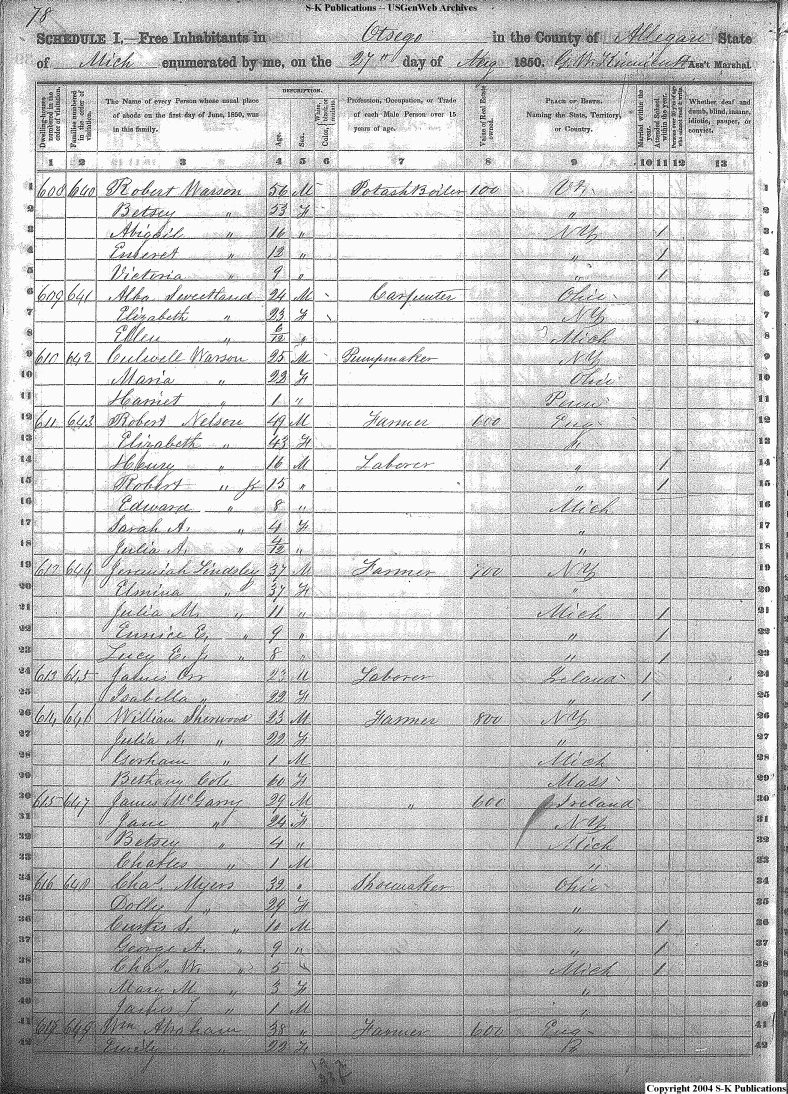 S-K Publications -- USGenWeb Archives
78
SCHEDULE I.—Free Inhabitants in Otsego in the County of Allegan State
of Mich enumerated by me, on the 27" day of Aug 1850. Ass't Marshal.
Dwelling-houses numbered in the order of visitation.
Families numbered in the order of visitation.
The Name of every Person whose usual place of abode on the first day of June, 1850, was in this family.
DESCRIPTION.
Age.
Sex.
Color, White, black, or mulatto.
Profession, Occupation, or Trade of each Male Person over 15 years of age.
Value of Real Estate owned.
PLACE OF BIRTH. Naming the State, Territory, or Country.
Married within the year.
Attended School within the year.
Whether deaf and dumb, blind, insane, idiotic, pauper, or convict.
1 2 3 4 5 6 7 8 9 10 11 12 13
1 608 640 Robert Warson 56 M Potash Boiler 100 Vt. 1
2 Betsey " 53 F " 2
3 Abigail " 16 " NY 1 3
4 Emeret " 12 " " 1 4
5 Victoria " 9 " " 1 5
6 609 641 24 M Carpenter Ohio 6
7 Elizabeth " 23 F NY 7
8 Ellen " 6/12 " Mich 8
9 610 642 Culwell Warson 25 M Pumpmaker NY 9
10 Maria " 22 F Ohio 10
11 Harriet " 1 " Penn 11
12 611 643 Robert Nelson 49 M Farmer 100 Eng 12
13 Elizabeth " 43 F " 13
14 Henry " 16 M Laborer " 1 14
15 Robert " Jr 15 " " 1 15
16 Edward " 8 " Mich 16
17 Sarah A. " 4 F " 17
18 Julia A. " 4/12 " " 18
19 612 644 Jeremiah Lindsley 37 M Farmer 700 NY 19
20 Elmina " 37 F " 20
21 Julia M. " 11 " Mich 1 21
22 Eunice E. " 9 " " 1 22
23 Lucy E. J. " 8 " " 1 23
24 613 645 James Orr 23 M Laborer Ireland 1 24
25 Isabella " 22 F " 1 25
26 614 646 William Sherwood 23 M Farmer 800 NY 26
27 Julia A. " 22 F " 27
28 Gorham " 1 M Mich 28
29 Bethany Cole 60 F Mass 29
30 615 647 James McGarry 29 M " 600 Ireland 30
31 Jane " 24 F NY 31
32 Betsey " 4 " Mich 32
33 Charles " 1 M " 33
34 616 648 Chas. Myers 32 " Shoemaker Ohio 34
35 Dolly " 29 F " 35
36 Curtis S. " 10 M " 1 36
37 George A. " 9 " " 1 37
38 Chas. W. " 5 " Mich 1 38
39 Mary M. " 3 F " 39
40 James T. " 1 M " 40
41 649 Wm Abraham 38 " Farmer 600 Eng 41
42 Emily " 22 F 42
Copyright 2004 S-K Publications